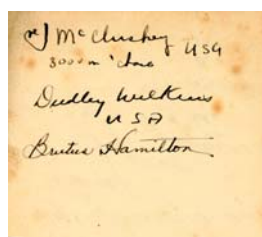 J McCluskey USA
3000 m
Dudley Wilkins
USA
Brutus Hamilton